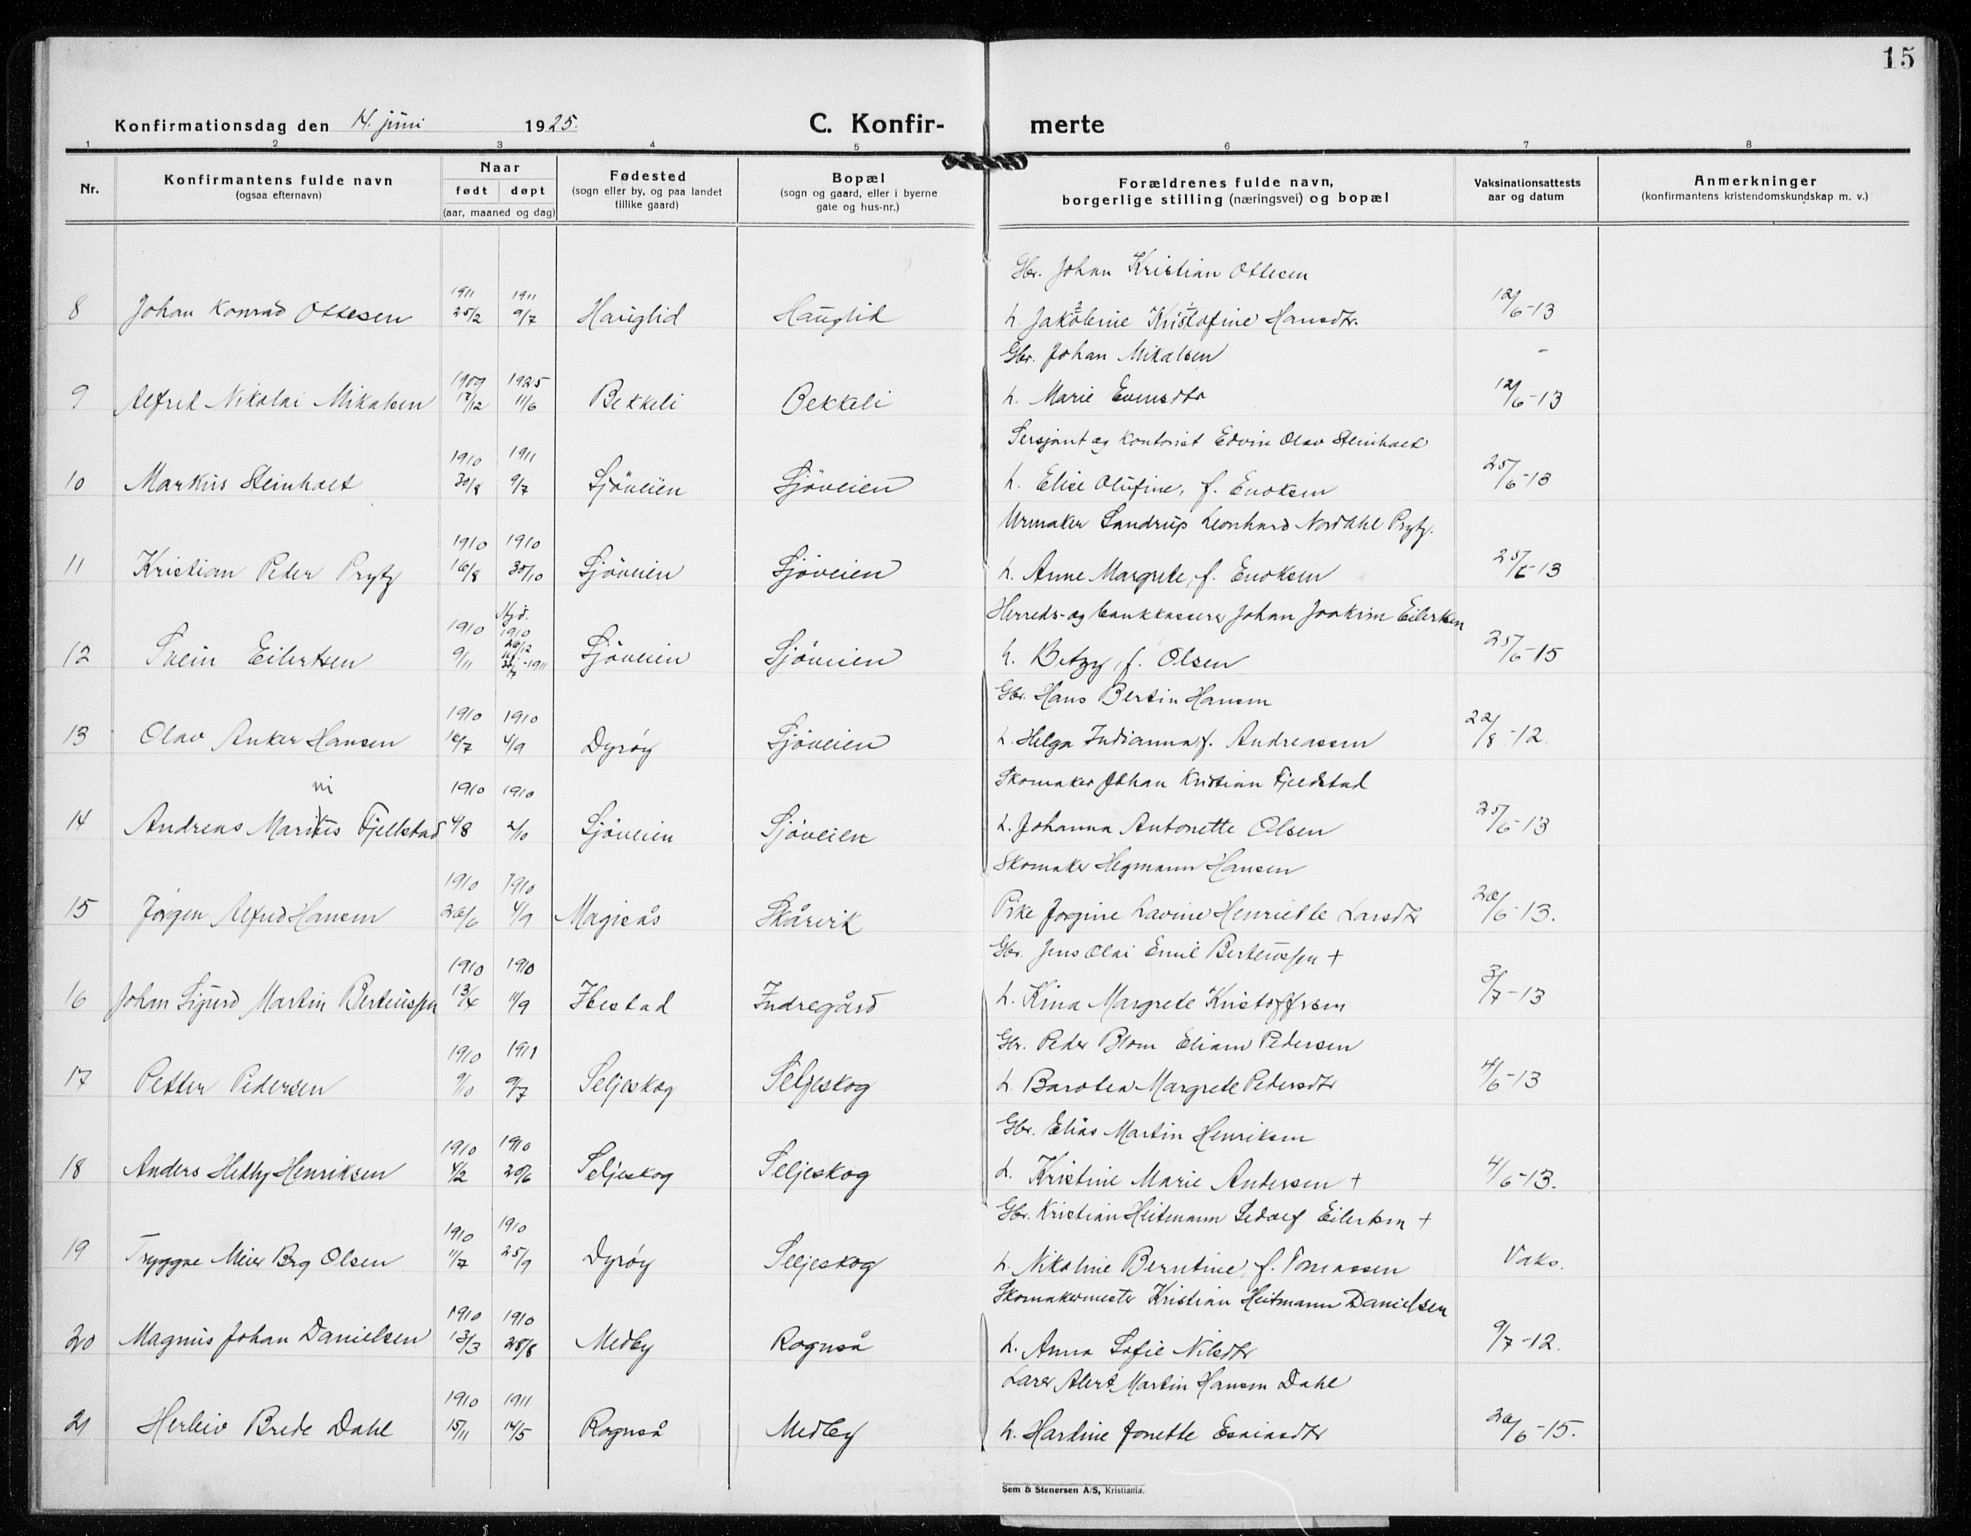 15
Konfirmationsdag den 14. juni 1925. C. Konfir- merte
1 2 3 4 5 6 7 8
Nr. Konfirmantens fulde navn (ogsaa efternavn) Naar født døpt (aar, maaned og dag) Fødested (sogn eller by, og paa landet tillike gaard) Bopæl (sogn og gaard, eller i byerne gate og hus-nr.) Forældrenes fulde navn, borgerlige stilling (næringsvei) og bopæl Vaksinationsattests aar og datum Anmerkninger (konfirmantens kristendomskundskap m. v.)
Gbr. Johan Kristian Ottesen
1911 1911
8 Johan Konrad Ottesen 25/2 9/7 Hauglid Hauglid h. Jakobine Kristofine Hansdtr. 12/6-13
Gbr. Johan Mikalsen -
1909 1925
9 Alfred Nikolai Mikalsen 17/12 11/6 Bekkeli Bekkeli h. Marie Evensdtr 12/6-13
Sersjant og kontorist Edvin Olav Steinholt
1910 1911
10 Markus Steinholt 30/8 9/7 Sjöveien Sjöveien h. Elise Olufine, f. Enoksen 25/6-13
Urmaker Sandrup Leonhard Nordahl Prytz.
1910 1910
11 Kristian Peder Prytz 16/8 30/10 Sjöveien Sjöveien h. Anne Margrete, f. Enoksen 25/6-13
Herreds- og bankkasserer Johan Joakim Eilertsen
1910 Hjd. 1910
12 Svein Eilertsen 9/11 26/12 -1911 Sjöveien Sjöveien h. Betzy, f. Olsen 25/6-15
Gbr. Hans Bertin Hansen
1910 1910
13 Olav Anker Hansen 16/7 4/9 Dyrøy Sjöveien h. Helga Indianna f. Andreassen 22/8-12.
Skomaker Johan Kristian Fjeldstad
ni 1910 1910
14 Andreas Marius Fjellstad 4/8 2/10 Sjöveien Sjöveien h. Johanna Antonette Olsen 25/6-13
Skomaker Hegmann Hansen
1910 1910
15 Jørgen Alfred Hansen 26/6 4/9 Magisås Skårvik Pike Jorgine Lavine Henriette Larsdtr 20/6-13.
Gbr. Jens Olai Emil Berteussen +
1910 1910
16 Johan Sigurd Martin Berteussen 13/4 11/9 Ibestad Indregård h. Kina Margrete Kristoffersen 3/7-13
Gbr. Peder Blom Eliam Pedersen
1910 1911
17 Petter Pedersen 9/10 9/7 Seljeskog Seljeskog h. Barolea Margrete Pedersdtr 4/6-13
Gbr. Elias Martin Henriksen
1910 1910
18 Anders Hetby Henriksen 4/2 20/6 Seljeskog Seljeskog h. Kristine Marie Andersen + 4/6-13.
Gbr. Kristian Heitmann Sedolf Eilertsen +
1910 1910
19 Tryggve Meier Berg Olsen 11/7 25/9 Dyrøy Seljeskog h. Nikoline Berntine, f. Tomassen Vaks.
Skomakermester Kristian Heitmann Danielsen
1910 1910
20 Magnus Johan Danielsen 13/3 28/8 Medby Rognså h. Anna Sofie Nilsdtr 9/7-12.
Lærer Alert Martin Hansen Dahl
1910 1911
21 Herleiv Brede Dahl 15/11 14/5 Rognså Medby h. Hartine Jonette Esaiasdtr 20/6-15.
Sem & Stenersen A/S, Kristiania.